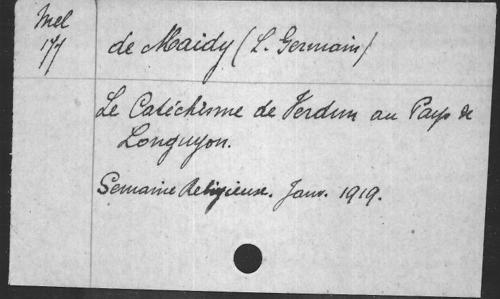 Mel
177
de Maidy (L. Germain)
Le Catéchisme de Verdun au Pays de
Longuyon.
Semaine Religieuse. Janv. 1919.